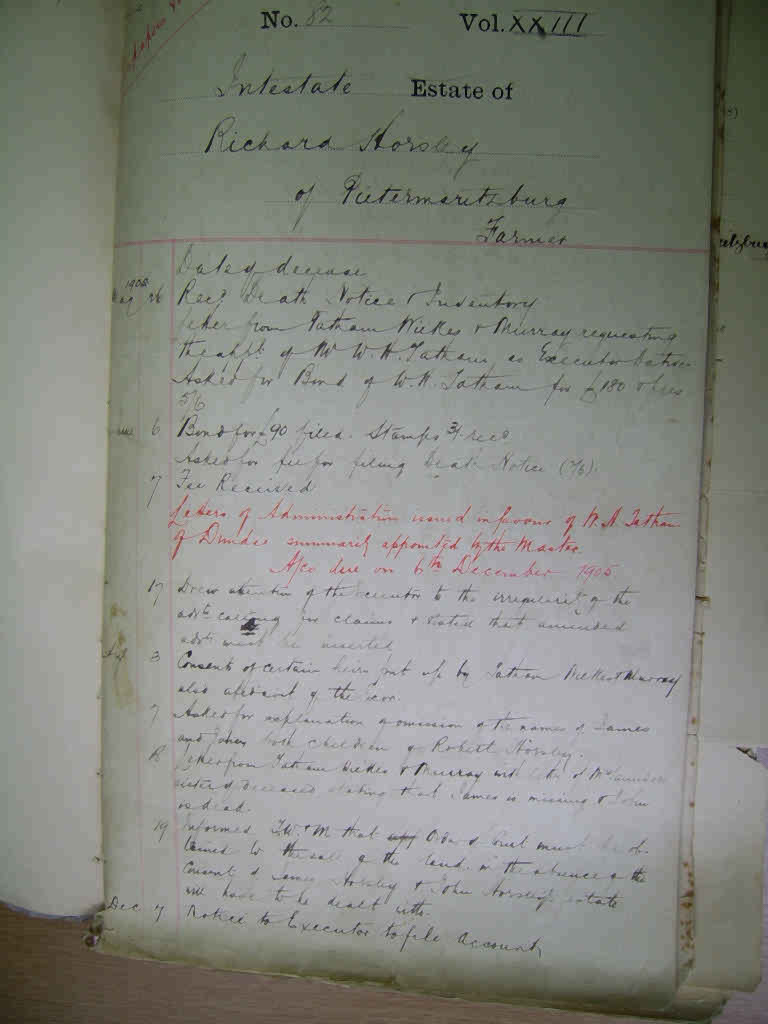 papers
No. 82 Vol. XXIII
Intestate Estate of
Richard Horsley
of Pietermaritzburg
Farmer
Date of decease
1905
26 Recd Death Notice & Inventory
Letter from Tatham Wilkes & Murray requesting
the appt of Mr W. H. Tatham as Executor Dative
Asked for Bond of W. H. Tatham for £180
5/6
June 6 Bond for £90 filed. Stamps 3/- recd
Asked for fee for filing Death Notice
7 Fee Received
Letters of Administration issued in favour of W. H. Tatham
of Dundee summarily appointed by the Master
A/co due on 6th December 1905
17 Drew attention of the executor to the irregularity of the
advt calling for claims & stated that amended
advt must be inserted
3 Consents of certain heirs put up by Tatham Wilkes & Murray
also affidavit of the
7 Asked for explanation of omission of the names of James
and John both children of Robert Horsley.
8 Letter from Tatham Wilkes & Murray with
sister of deceased stating that James is missing & John
is dead.
19 Informed T.W. & M that Order of Court must be ob-
tained for the sale of the land in the absence of the
Consent of James Horsley & John Horsley's estate
will have to be dealt with.
Dec 7 Notice to Executor to file account